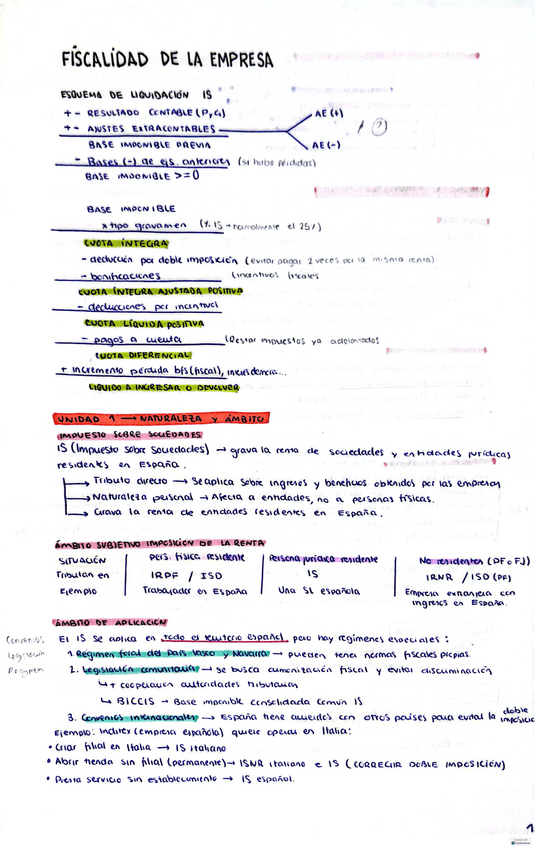 FISCALIDAD DE LA EMPRESA
ESQUEMA DE LIQUIDACIÓN IS
+ - RESULTADO CONTABLE (P, G)
+ - AJUSTES EXTRACONTABLES
AE (+)
AE (-)
BASE IMPONIBLE PREVIA
- Bases (-) de ejs. anteriores (si hubo pérdidas)
BASE IMPONIBLE >= 0
BASE IMPONIBLE
x tipo gravamen (% IS → normalmente el 25%)
CUOTA ÍNTEGRA
- deducción por doble imposición (evitar pagar 2 veces por la misma renta)
- bonificaciones (incentivos fiscales
CUOTA ÍNTEGRA AJUSTADA POSITIVA
- deducciones por incentivos
CUOTA LÍQUIDA POSITIVA
- pagos a cuenta (Restar impuestos ya adelantados
CUOTA DIFERENCIAL
+ incremento pérdida bfs (fiscal),
LIQUIDO A INGRESAR O DEVOLVER
UNIDAD 1 → NATURALEZA Y ÁMBITO
IMPUESTO SOBRE SOCIEDADES
IS (Impuesto sobre Sociedades) → grava la renta de sociedades y entidades jurídicas
residentes en España.
→ Tributo directo → Se aplica sobre ingresos y beneficios obtenidos por las empresas
→ Naturaleza personal → Afecta a entidades, no a personas físicas.
→ Grava la renta de entidades residentes en España.
ÁMBITO SUBJETIVO IMPOSICIÓN DE LA RENTA
SITUACIÓN Pers. física residente Persona jurídica residente No residentes (PF o PJ)
Tributan en IRPF / ISD IS IRNR / ISD (PF)
Ejemplo Trabajador en España Una SL española Empresa extranjera con
ingresos en España.
ÁMBITO DE APLICACIÓN
Convenios El IS se aplica en todo el territorio español, pero hay regímenes especiales:
Legislación 1. Régimen foral del País Vasco y Navarra → pueden tener normas fiscales propias.
Régimen 2. Legislación comunitaria → se busca armonización fiscal y evitar discriminación
↳ + cooperación autoridades tributarias
↳ BICCIS → Base imponible consolidada común IS
3. Convenios internacionales → España tiene acuerdos con otros países para evitar la doble imposición
Ejemplo: Inditex (empresa española) quiere operar en Italia:
• Criar filial en Italia → IS italiano
• Abrir tienda sin filial (permanente) → ISNR italiano e IS (CORREGIR DOBLE IMPOSICIÓN)
• Presta servicio sin establecimiento → IS español.
1